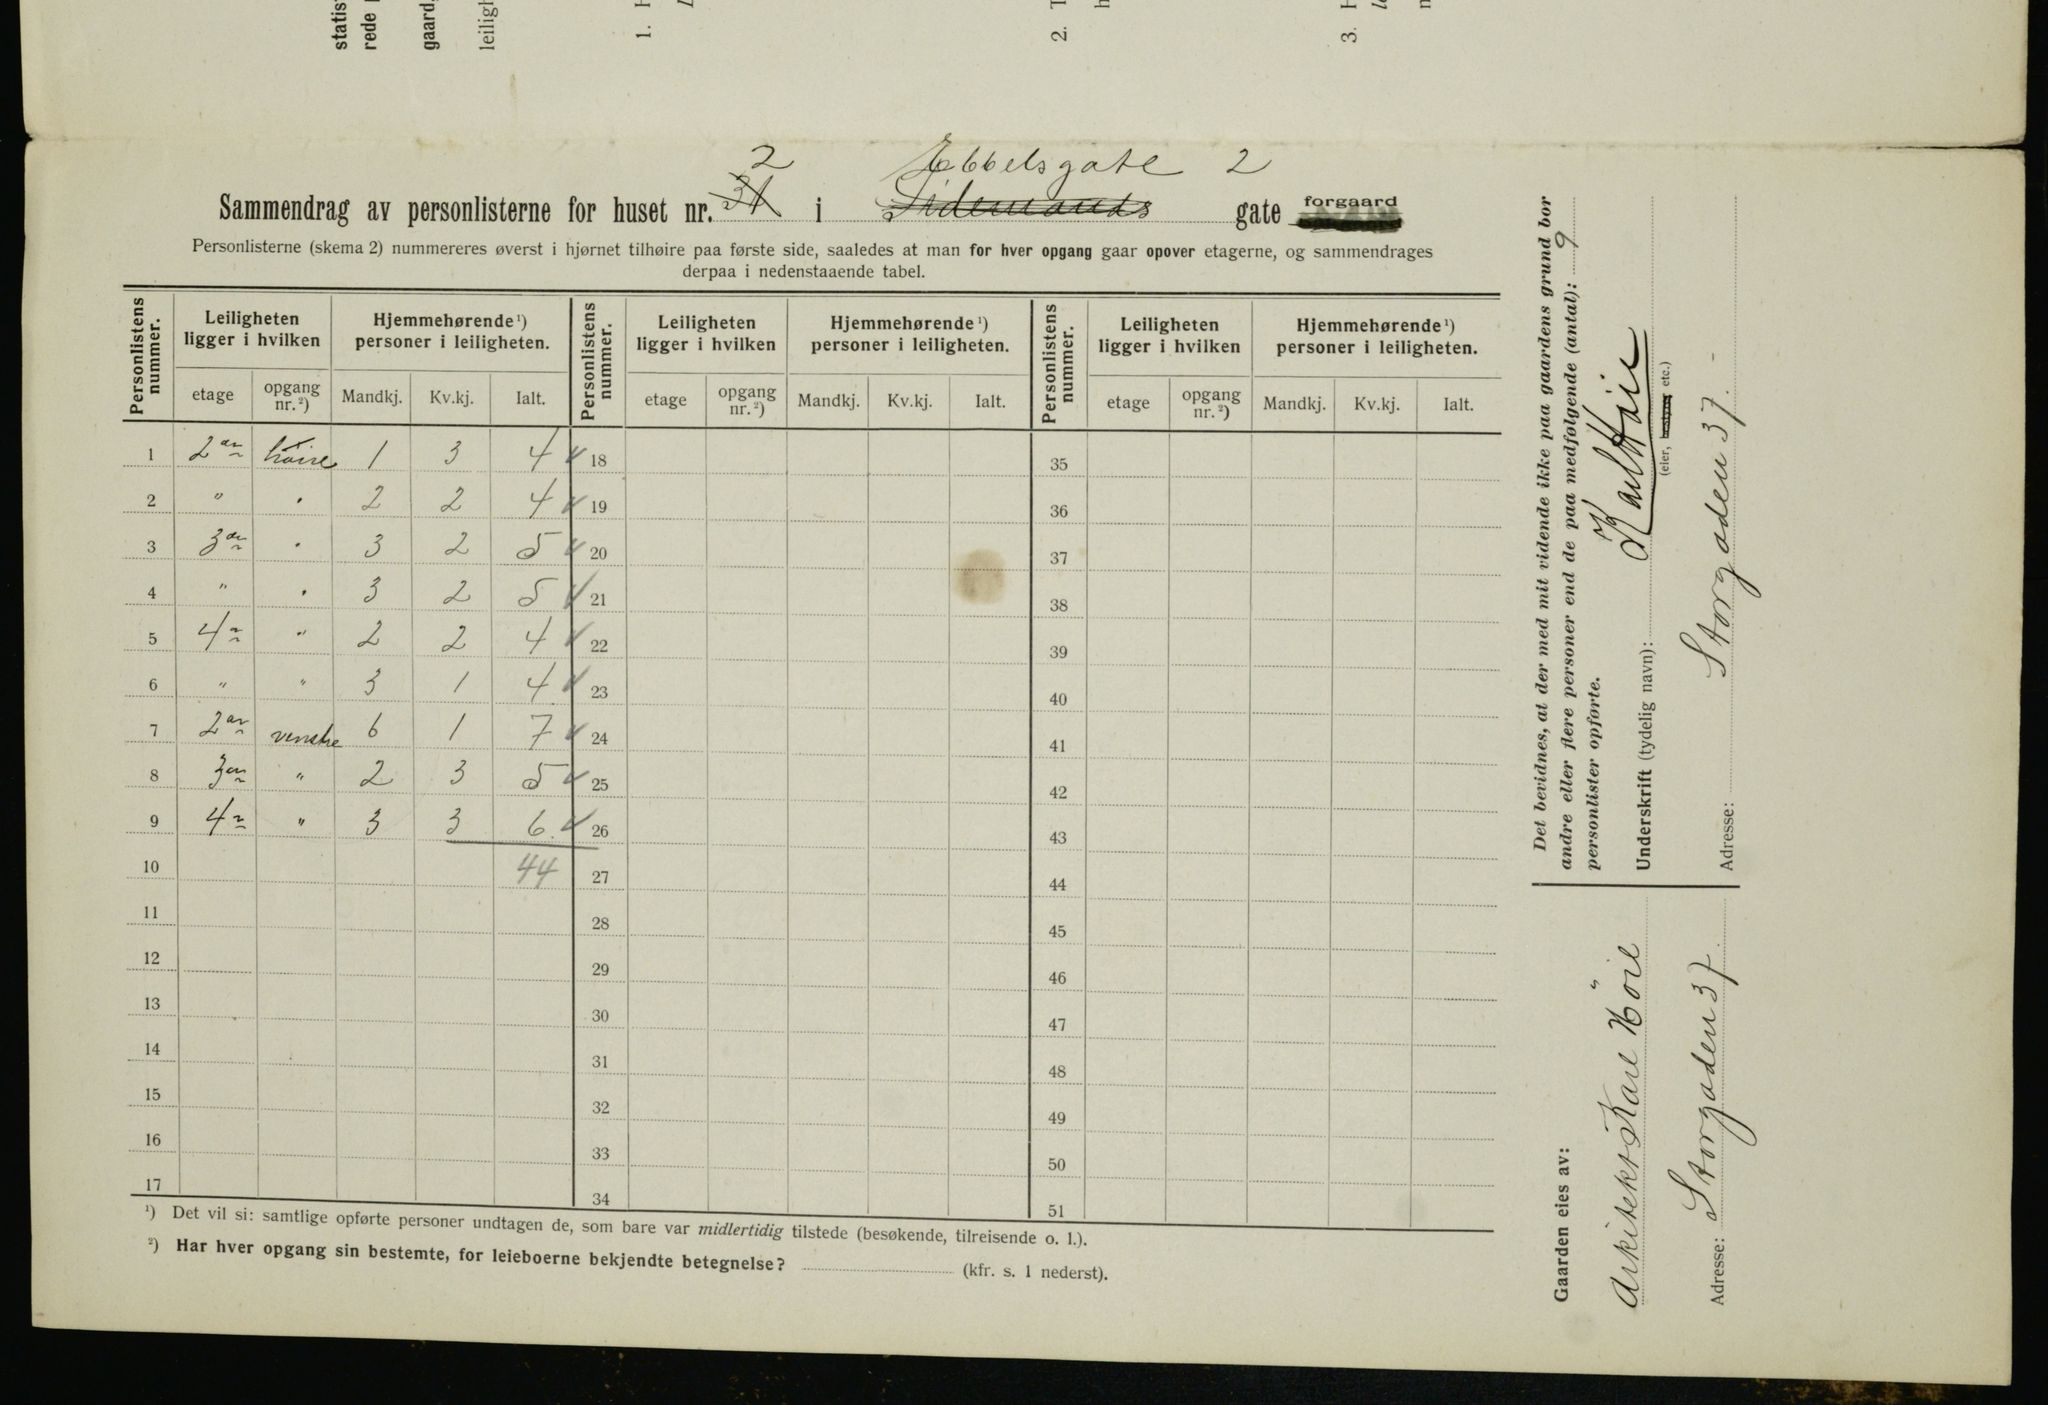 statis
rede
gaard,
leiligh
1. H
L
2. T
h
3. H
le
n
2 Ebbelsgate 2
Sammendrag av personlisterne for huset nr. 31 i gate forgaard
Personlisterne (skema 2) nummereres øverst i hjørnet tilhøire paa første side, saaledes at man for hver opgang gaar opover etagerne, og sammendrages
derpaa i nedenstaaende tabel.
Personlistens nummer. Leiligheten ligger i hvilken Hjemmehørende ¹) personer i leiligheten. Personlistens nummer. Leiligheten ligger i hvilken Hjemmehørende ¹) personer i leiligheten. Personlistens nummer. Leiligheten ligger i hvilken Hjemmehørende ¹) personer i leiligheten.
etage opgang nr. ²) Mandkj. Kv.kj. Ialt. etage opgang nr. ²) Mandkj. Kv.kj. Ialt. etage opgang nr. ²) Mandkj. Kv.kj. Ialt.
1 2den høire 1 3 4 ✓ 18 35
2 " " 2 2 4 ✓ 19 36
3 3die " 3 2 5 ✓ 20 37
4 " " 3 2 5 ✓ 21 38
5 4de " 2 2 4 ✓ 22 39
6 " " 3 1 4 ✓ 23 40
7 2den venstre 6 1 7 ✓ 24 41
8 3die " 2 3 5 ✓ 25 42
9 4de " 3 3 6 ✓ 26 43
10 44 27 44
11 28 45
12 29 46
13 30 47
14 31 48
15 32 49
16 33 50
17 34 51
¹) Det vil si: samtlige opførte personer undtagen de, som bare var midlertidig tilstede (besøkende, tilreisende o. l.).
²) Har hver opgang sin bestemte, for leieboerne bekjendte betegnelse? (kfr. s. 1 nederst).
Det bevidnes, at der med mit vidende ikke paa gaardens grund bor
andre eller flere personer end de paa medfølgende (antal): 9
personlister opførte.
Underskrift (tydelig navn): Karl Høie
(eier, bestyrer etc.)
Adresse: Storgaden 37. -
Gaarden eies av:
Arkitekt Karl Høie
Adresse: Storgaden 37.